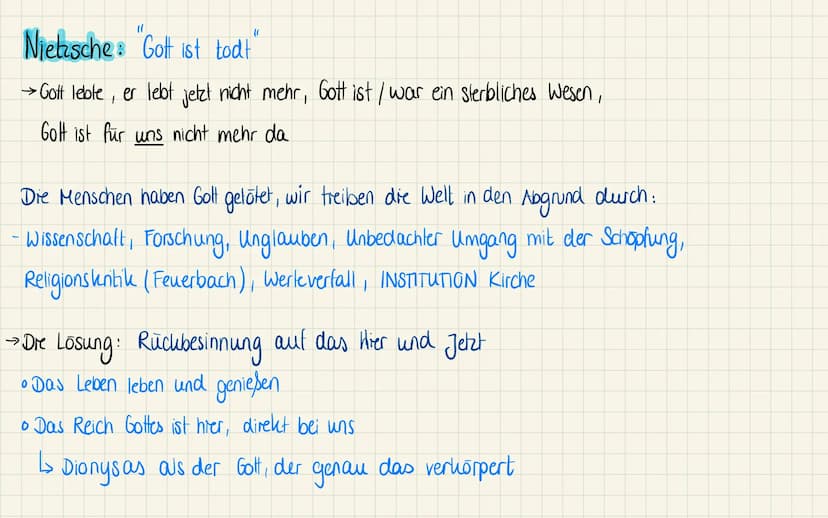 Nietzsche: "Gott ist todt"
→ Gott lebte, er lebt jetzt nicht mehr, Gott ist / war ein sterbliches Wesen,
Gott ist für uns nicht mehr da
Die Menschen haben Gott getötet, wir treiben die Welt in den Abgrund durch:
- Wissenschaft, Forschung, Unglauben, Unbedachter Umgang mit der Schöpfung,
Religionskritik (Feuerbach), Werteverfall, INSTITUTION Kirche
→ Die Lösung: Rückbesinnung auf das Hier und Jetzt
• Das Leben leben und genießen
• Das Reich Gottes ist hier, direkt bei uns
↳ Dionysas als der Gott, der genau das verkörpert